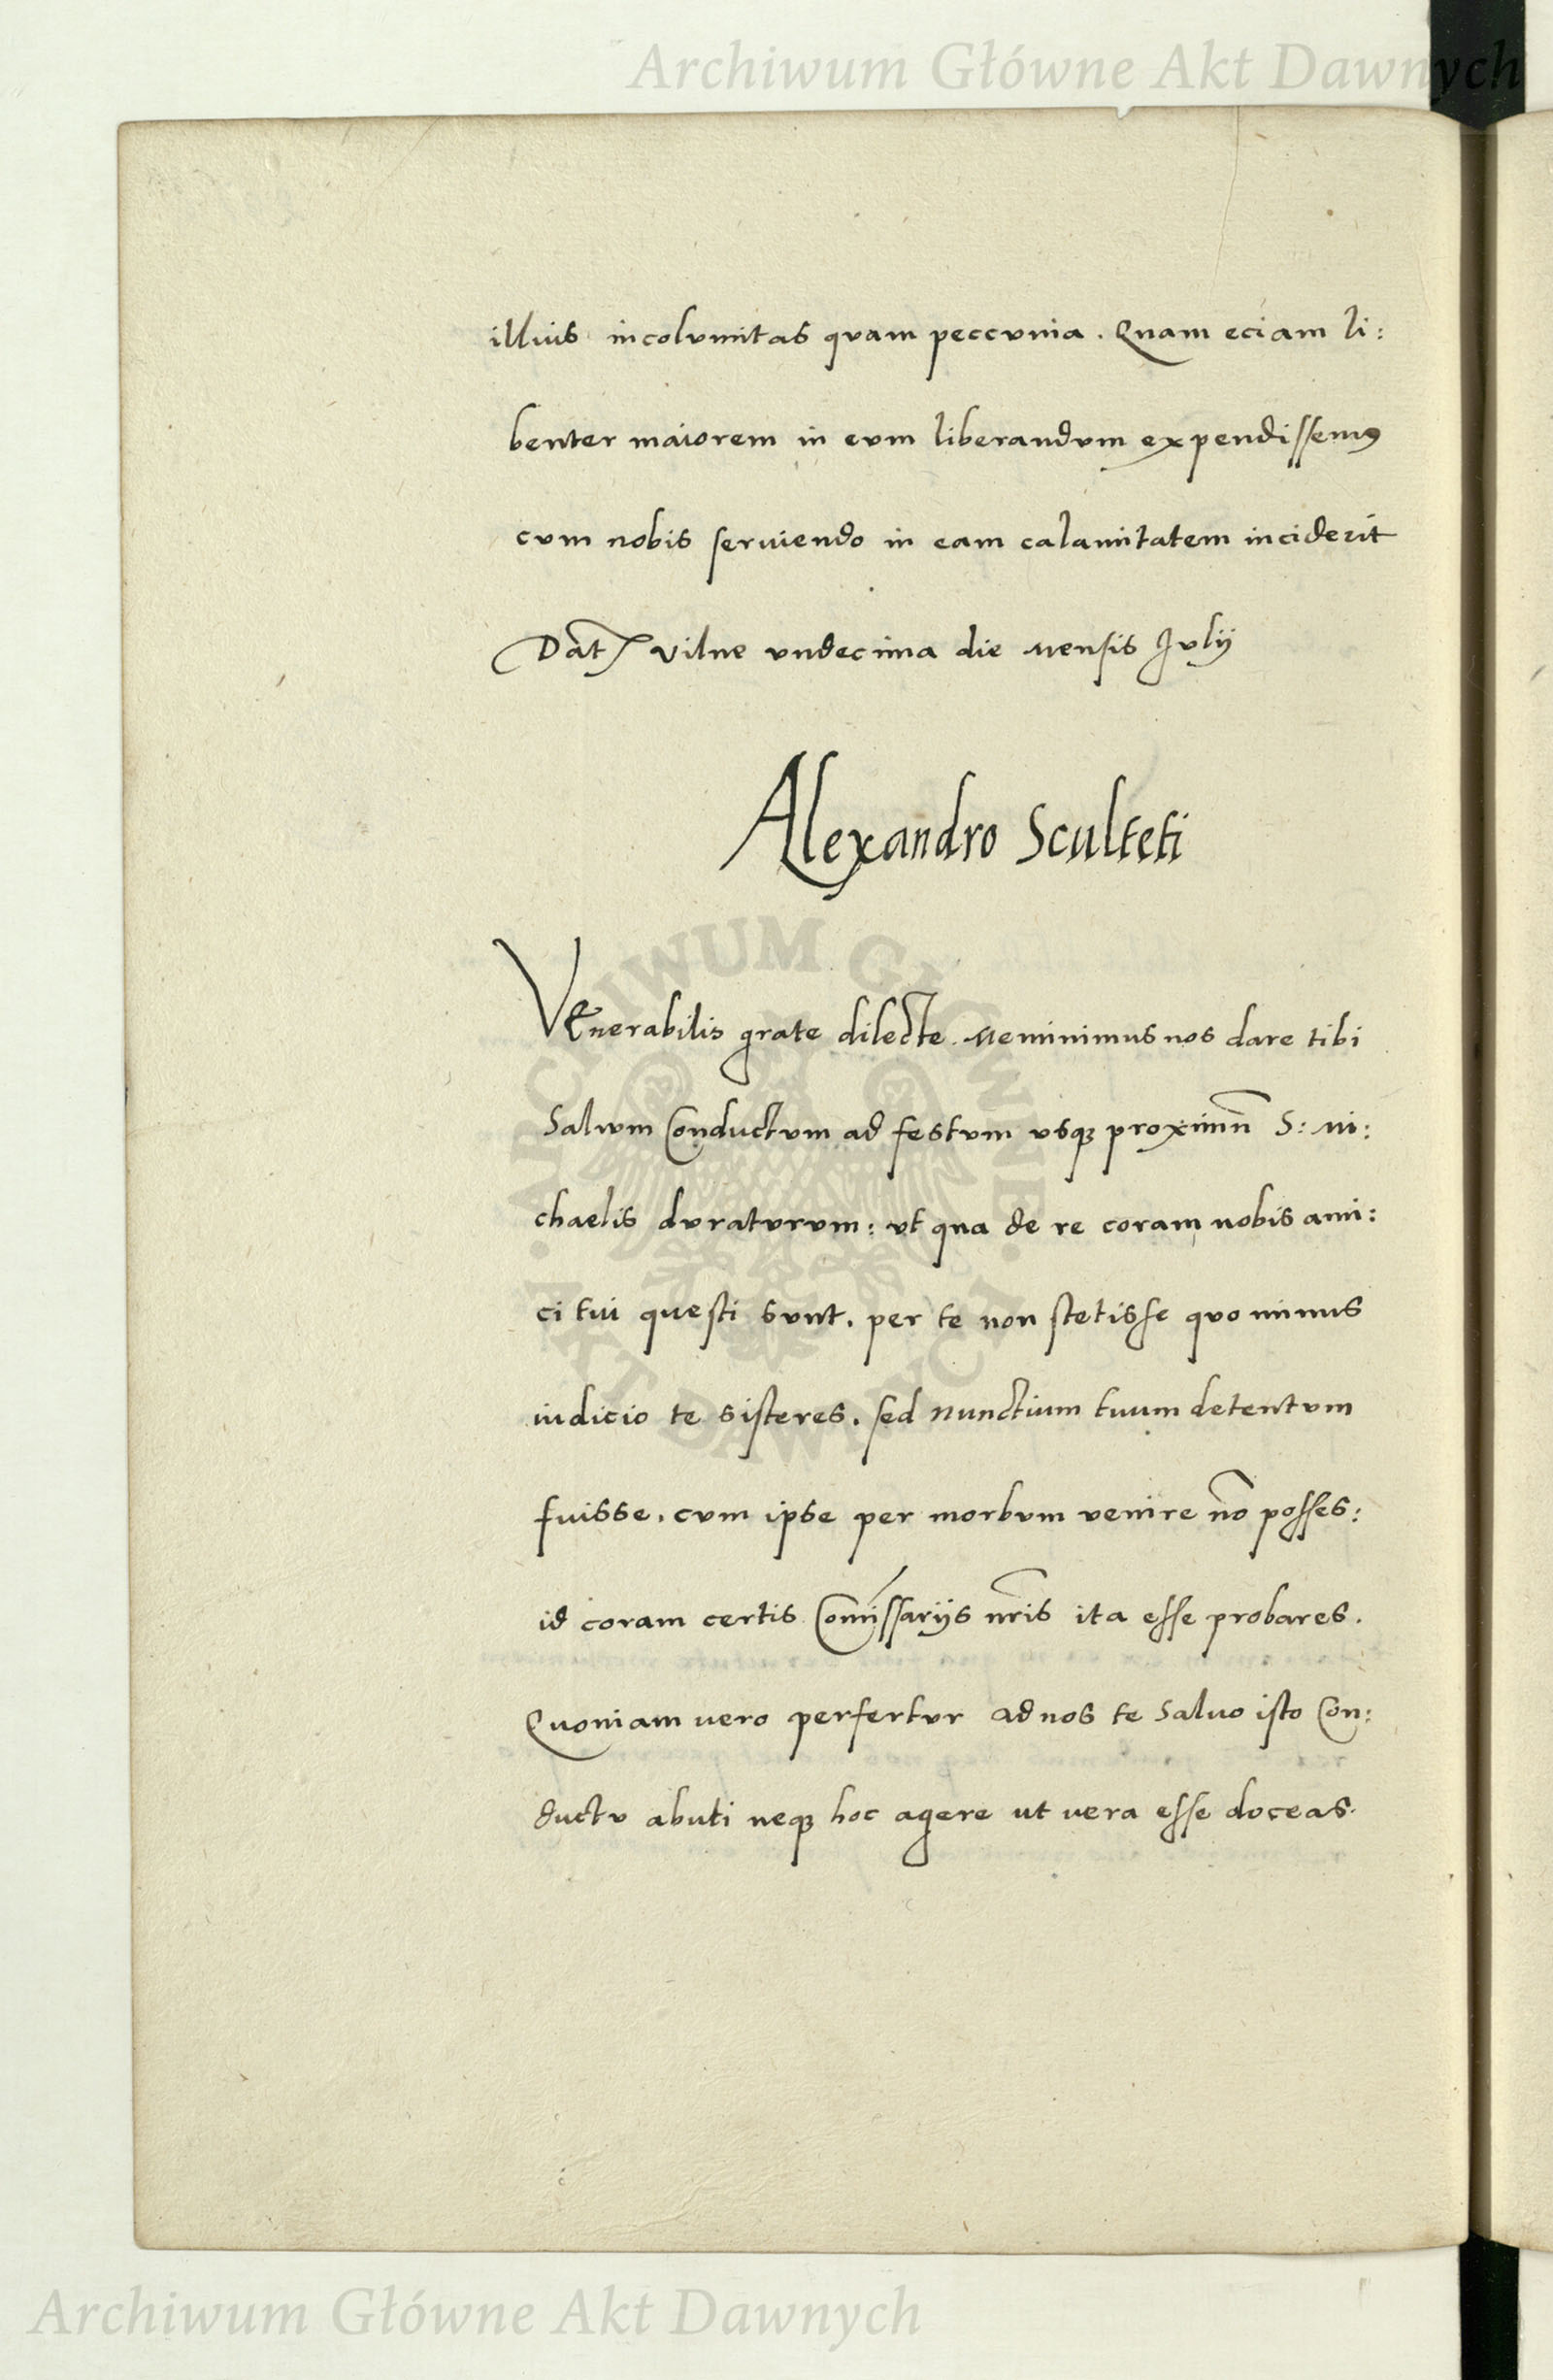 Archiwum Główne Akt Dawnych
illius incolumitas quam peccunia. Quam eciam li:
benter maiorem in eum liberandum expendissemus
cum nobis seruiendo in eam calamitatem inciderit
Dat vilne vndecima die mensis Iulij
Alexandro Sculteti
VEnerabilis grate dilecte. Meminimus nos dare tibi
Saluum Conductum ad festum vsque proximum S: Mi:
chaelis duraturum: vt qua de re coram nobis ami:
ci tui questi sunt, per te non stetisse quo minus
iudicio te sisteres, sed nunctium tuum detentum
fuisse, cum ipse per morbum venire no posses:
id coram certis Comissarijs nris ita esse probares.
Quoniam vero perfertur ad nos te Saluo isto Con:
ductu abuti neque hoc agere ut vera esse doceas.
ARCHIWUM GŁÓWNE AKT DAWNYCH
Archiwum Główne Akt Dawnych